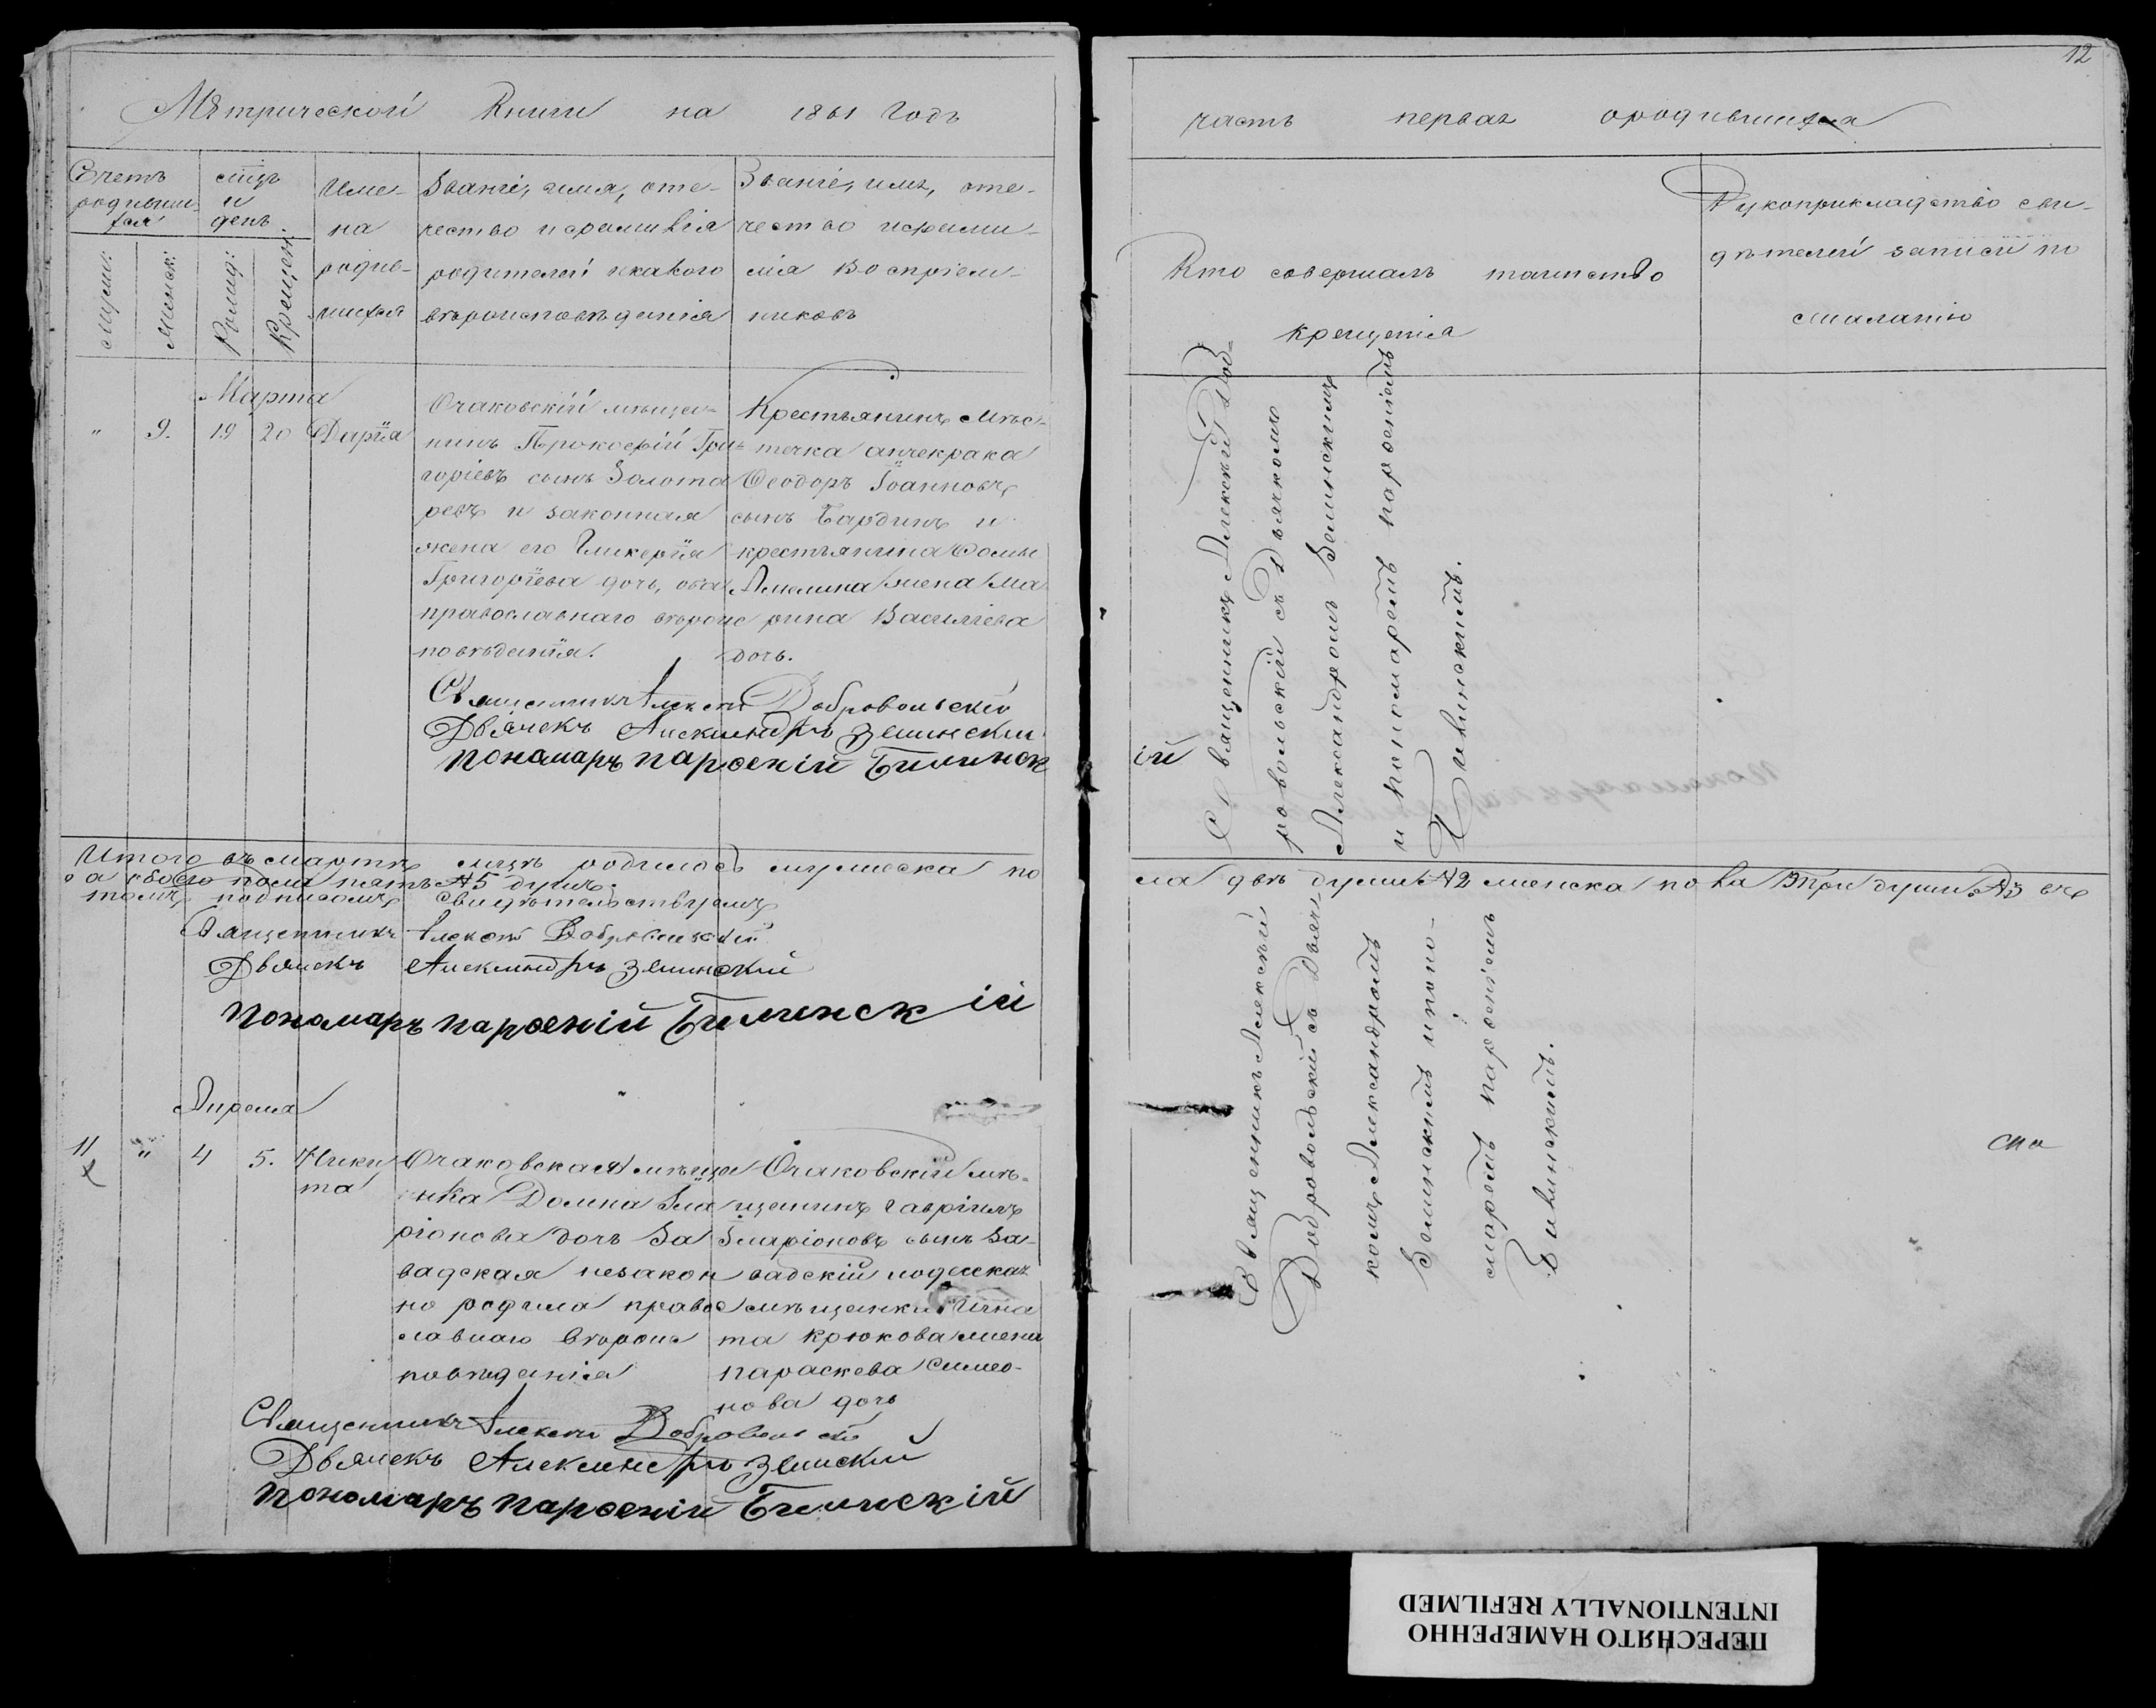 12
Метрической Книги на 1861 Годъ
часть первая ородившихся
Счетъ родивших-ся
мцъ и день
Муж:
Женск:
Рожд:
Крещен:
Име-
на
родив-
шихся
Званіе, имя, оте-
чество и фамилія
родителей и какого
вѣроисповѣданія
Званіе, имя, оте-
чество и фами-
лія Воспріем-
никовъ
Кто совершалъ таинство
крещенія
Рукоприкладство сви-
дѣтелей записи по
желанію
Марта
" 9. 19 20 Дарія
Очаковскій мѣща-
нинъ Прокофій Гри-
горіевъ сынъ Золота
ревъ и законная
жена его Гликерія
Григоріева дочь, оба
православнаго вѣроис
повѣданія.
Крестьянинъ Мѣс-
течка анчекрака
Ѳеодоръ Іоанновъ
сынъ Бардинъ и
крестьянина Ѳомы
Амелина жена Ма
рина Василіева
дочь.
Священникъ Алексѣй Доб-
ровольскій съ Дьячкомъ
Александромъ Зелинскимъ
и пономаремъ парѳеніемъ
Билинскимъ.
Священникъ Алексѣй Добровольскій
Дьячекъ Александръ Зелинскій
пономаръ парѳеній Билинскій
Итого въ мартѣ мцѣ родилось мужеска по
ла двѣ души №2 женска пола 3 три души №3 въ
а обоего пола пять №5 душъ.
томъ подписомъ свидѣтельствуемъ
Священникъ Алексѣй Добровольскій
Дьячекъ Александръ Зелинскій
пономаръ парѳеній Билинскій
Апреля
11 " 4 5. Ники
та
Очаковская мѣща
нка Домна Ила
ріонова дочь За
вадская незакон
но родила правос
лавнаго вѣроис
повѣданія
Очаковскій мѣ-
щанинъ Гавріилъ
Иларіоновъ сынъ За-
вадскій
мѣщанки Игна
та Крюкова жена
параскева Симео-
нова дочь
Священникъ Алексѣй
Добровольскій съ Дьяч-
комъ Александромъ
Зелинскимъ и поно-
маремъ парѳеніемъ
Билинскимъ.
Священникъ Алексѣй Добровольскій
Дьячекъ Александръ Зелинскій
пономаръ парѳеній Билинскій
ПЕРЕСНЯТО НАМЕРЕННО
INTENTIONALLY REFILMED